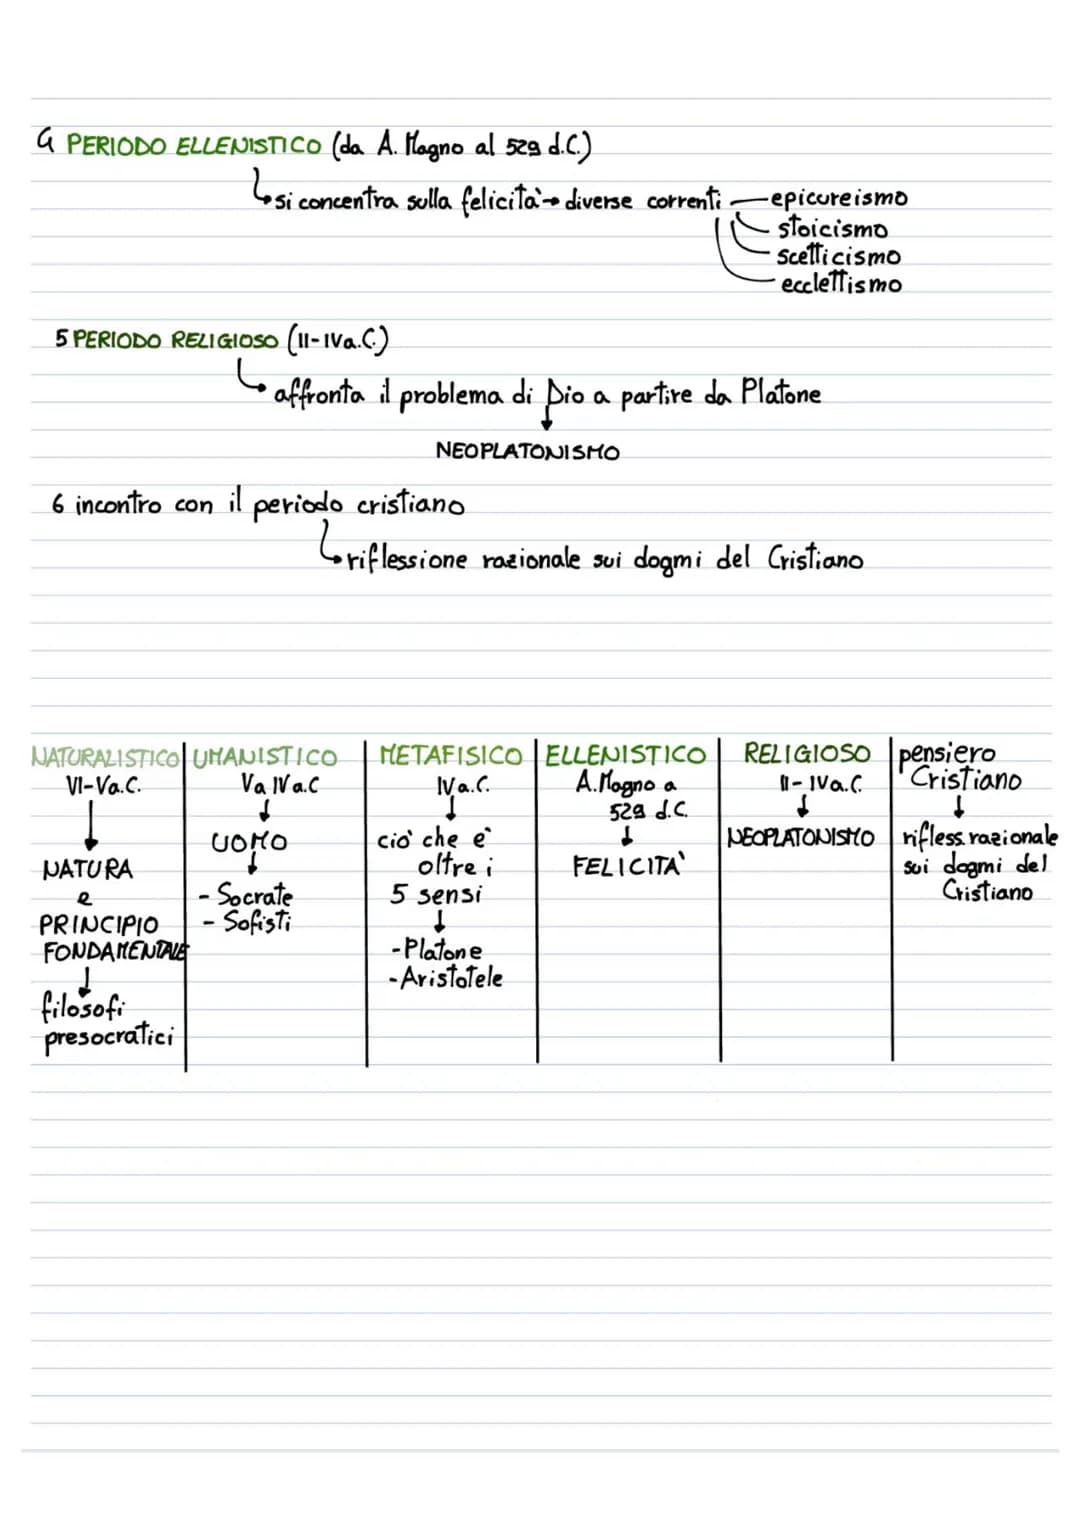 4 PERIODO ELLENISTICO (da A. Magno al 529 d.C.)
si concentra sulla felicità → diverse correnti
epicureismo
stoicismo
scetticismo
ecclettismo
5 PERIODO RELIGIOSO (II-IV a.C.)
affronta il problema di Dio a partire da Platone
NEOPLATONISMO
6 incontro con il periodo cristiano
riflessione razionale sui dogmi del Cristiano
NATURALISTICO
VI-V a.C.
NATURA
e
PRINCIPIO
FONDAMENTALE
filosofi
presocratici
UMANISTICO
V a IV a.C
UOMO
- Socrate
- Sofisti
METAFISICO
IV a.C.
ciò che è
oltre i
5 sensi
- Platone
- Aristotele
ELLENISTICO
A. Magno a
529 d.C.
FELICITÀ
RELIGIOSO
II-IV a.C.
NEOPLATONISMO
pensiero
Cristiano
rifless. razionale
sui dogmi del
Cristiano